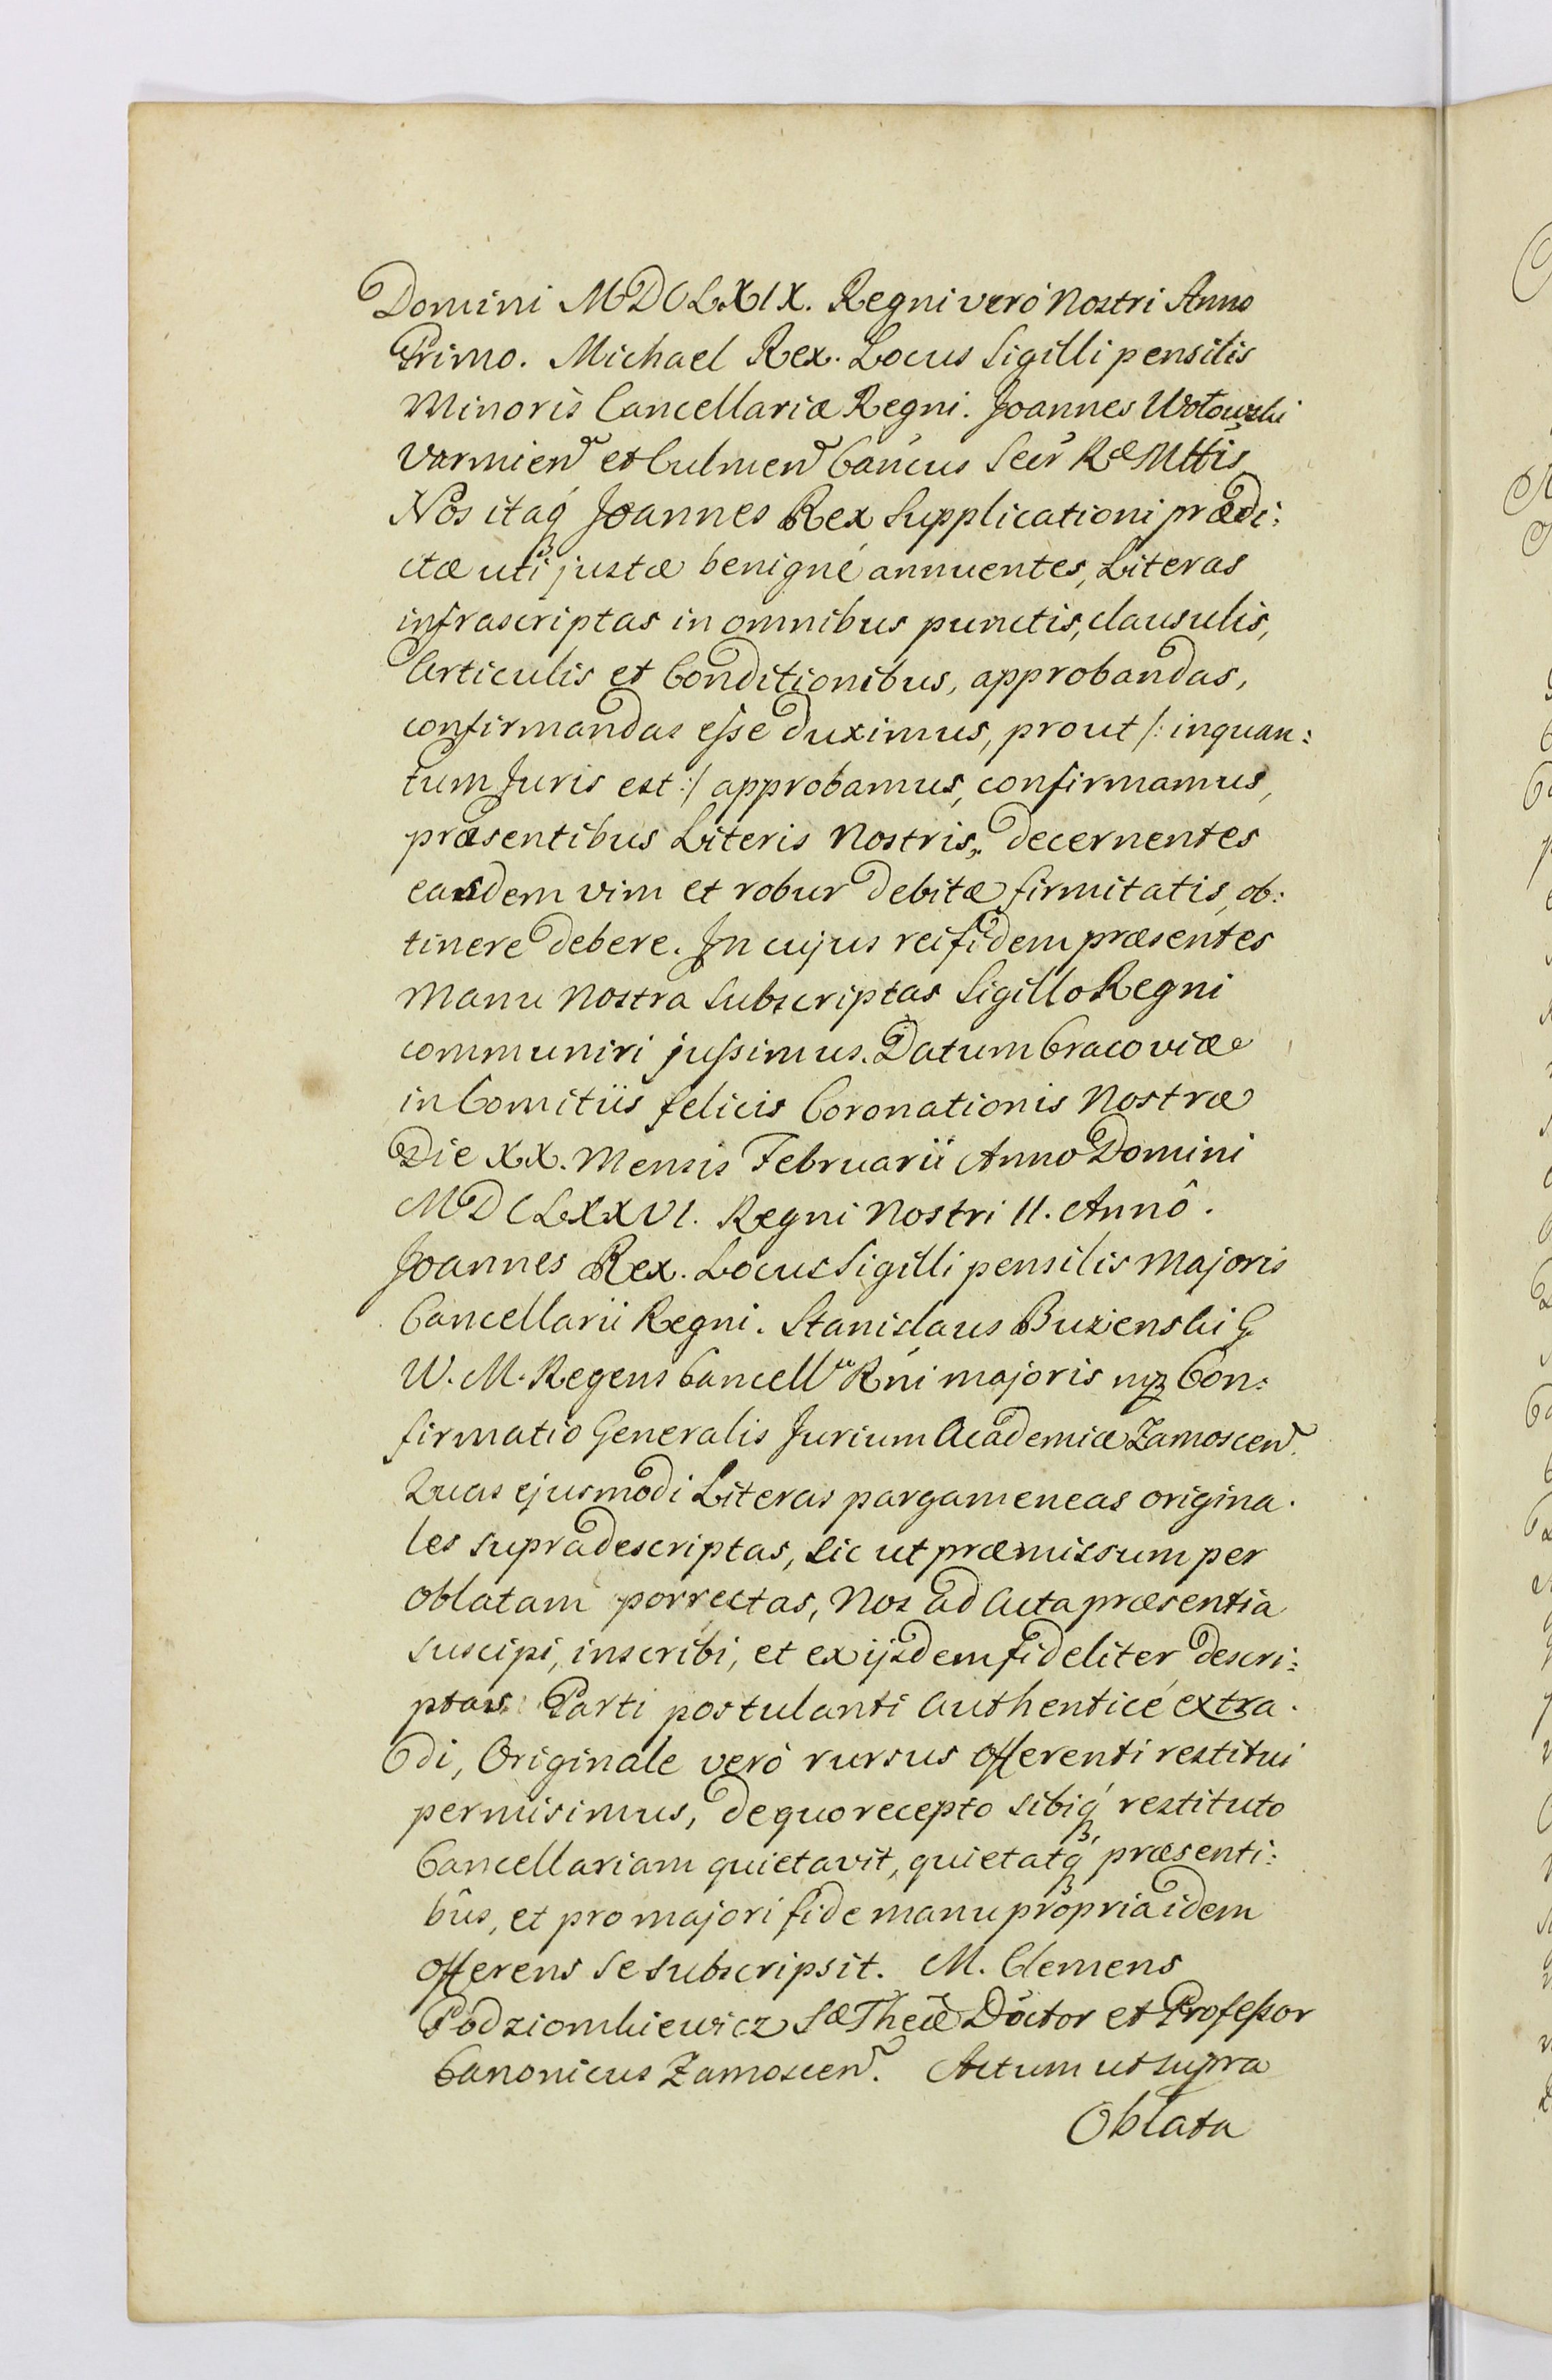 Domini MDCLXIX. Regni verò Nostri Anno
Primo. Michael Rex. Locus Sigilli pensilis
Minoris Cancellariæ Regni. Joannes Wołowski
Varmien et Culmen Cancus Secr Ræ Mttis
Nos itaq Joannes Rex Supplicationi prædi:
ctæ uti justæ benignè annuentes, Literas
infrascriptas in omnibus punctis, clausulis,
Articulis et Conditionibus, approbandas,
confirmandas esse duximus, prout /: inquan:
tum Juris est :/ approbamus, confirmamus,
præsentibus Literis Nostris, decernentes
easdem vim et robur debitæ firmitatis, ob:
tinere debere. In cujus rei fidem præsentes
Manu Nostra Subscriptas Sigillo Regni
communiri jussimus. Datum Cracoviæ
in Comitiis felicis Coronationis Nostræ
Die XX. Mensis Februarii Anno Domini
MDCLXXVI. Regni Nostri II. Annô.
Joannes Rex. Locus Sigilli pensilis Majoris
Cancellarii Regni. Stanislaus Buzenski G
W. M. Regens Cancell Rni majoris mpp Con:
firmatio Generalis Jurium Academiæ Zamoscen.
Quas ejusmodi Literas pargameneas origina.
les supradescriptas, sic ut præmissum per
Oblatam porrectas, Nos ad Acta præsentia
suscipi, inscribi, et ex ijsdem fideliter descri:
ptas Parti postulanti Authenticè extra.
di, Originale verò rursus Offerenti restitui
permisimus, de quo recepto sibiq restituto
Cancellariam quietavit, quietatq præsenti:
bûs, et pro majori fide manu propria idem
Offerens se subscripsit. M. Clemens
Podziomkiewicz Sæ Theæ Doctor et Professor
Canonicus Zamoscen. Actum ut supra
Oblata